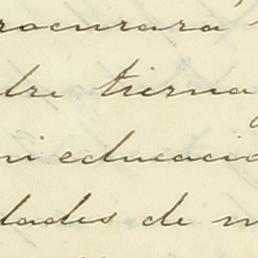 rocurara
dre tierna
ni educacio
dades de m